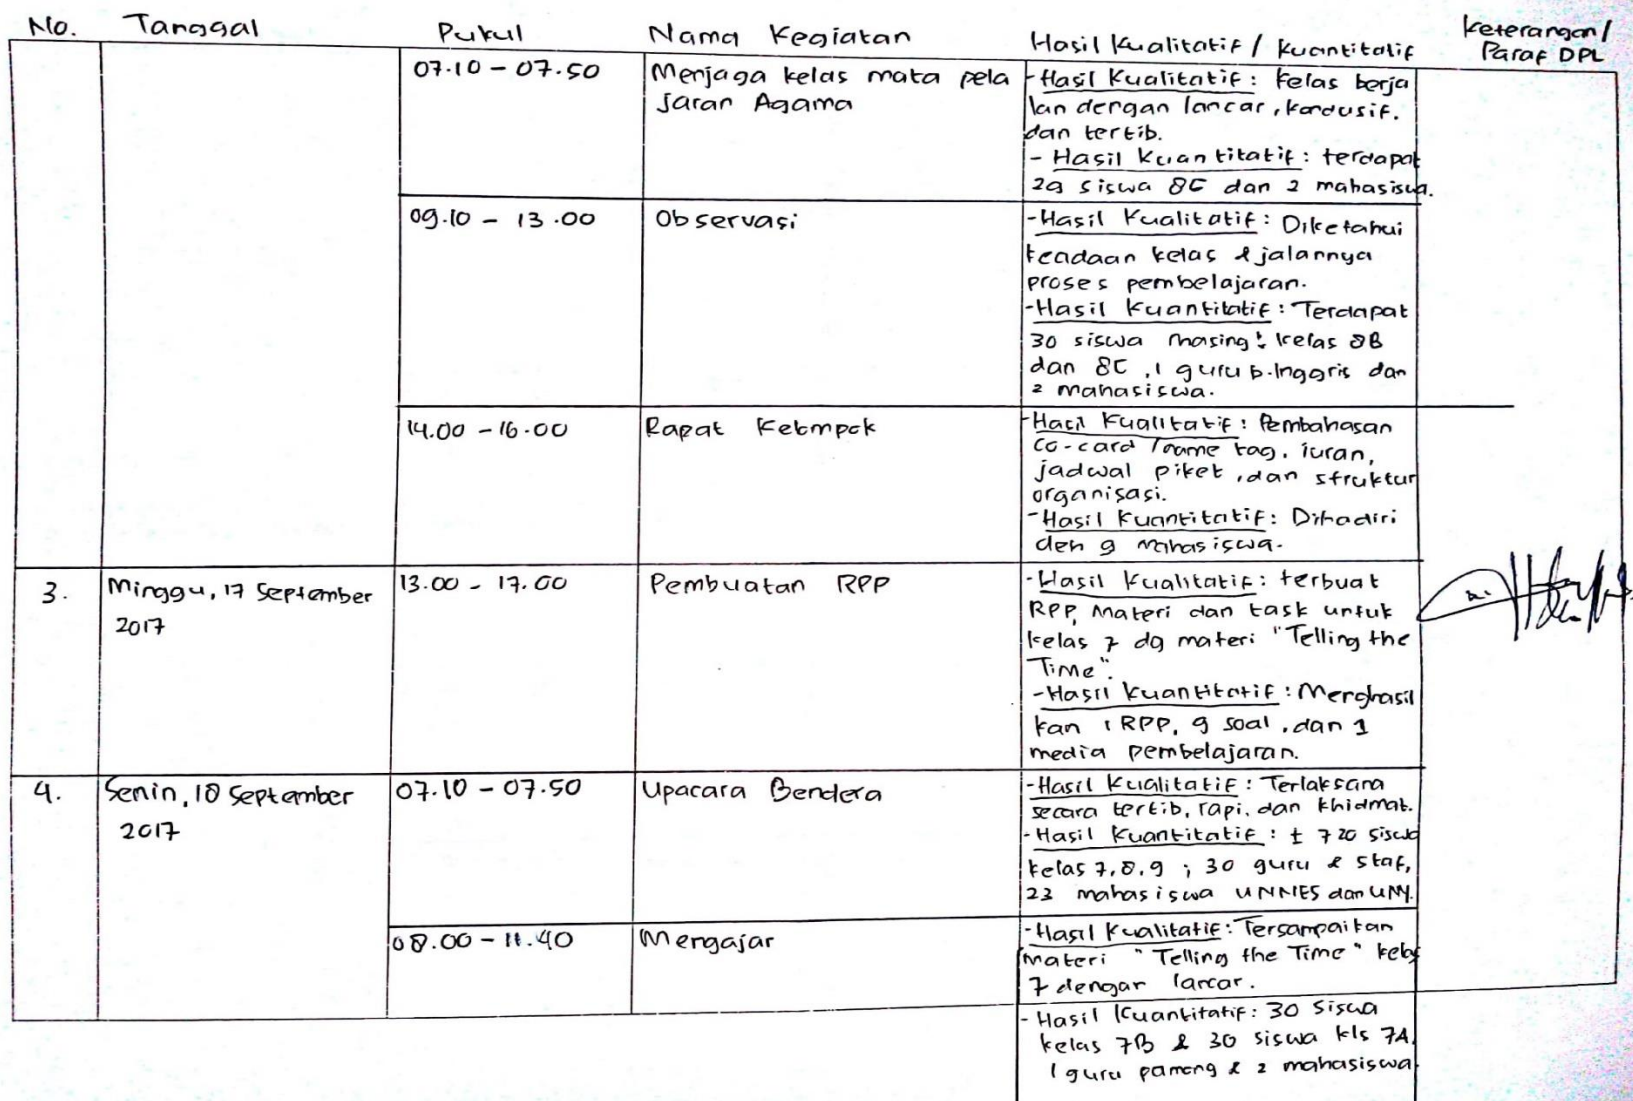 No. Tanggal Pukul Nama Kegiatan Hasil Kualitatif / Kuantitatif Keterangan/
Paraf DPL
07.10 - 07.50 Menjaga kelas mata pela
jaran Agama
- Hasil Kualitatif : kelas berja
lan dengan lancar, kondusif.
dan tertib.
- Hasil Kuantitatif : terdapat
29 siswa 8C dan 2 mahasiswa.
09.10 - 13.00 Observasi
- Hasil Kualitatif : Diketahui
keadaan kelas & jalannya
proses pembelajaran.
- Hasil Kuantitatif : Terdapat
30 siswa masing² kelas 8B
dan 8C, 1 guru b.Inggris dan
2 mahasiswa.
14.00 - 16.00 Rapat Kelompok
- Hasil Kualitatif : Pembahasan
co-card /name tag, iuran,
jadwal piket, dan struktur
organisasi.
- Hasil Kuantitatif : Dihadiri
oleh 9 mahasiswa.
3. Minggu, 17 September
2017
13.00 - 17.00 Pembuatan RPP
- Hasil Kualitatif : terbuat
RPP, Materi dan task untuk
kelas 7 dg materi "Telling the
Time".
- Hasil Kuantitatif : Menghasil
kan 1 RPP, 9 soal, dan 1
media pembelajaran.
4. Senin, 18 September
2017
07.10 - 07.50 Upacara Bendera
- Hasil Kualitatif : Terlaksana
secara tertib, rapi, dan khidmat.
- Hasil Kuantitatif : ± 720 siswa
kelas 7,8,9 ; 30 guru & staf,
23 mahasiswa UNNES dan UNY.
08.00 - 11.40 Mengajar
- Hasil Kualitatif : Tersampaikan
materi "Telling the Time" kelas
7 dengan lancar.
- Hasil Kuantitatif : 30 siswa
kelas 7B & 30 siswa kls 7A,
1 guru pamong & 2 mahasiswa.